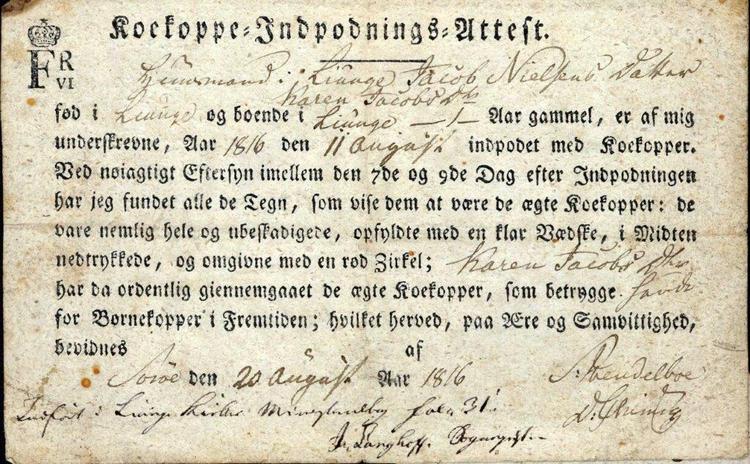 Koekoppe-Indpodnings-Attest.
FR
VI
Huusmand i Liunge Jacob Nielsens Datter
Karen Jacobs Dtr
fød i Liunge og boende i Liunge —1— Aar gammel, er af mig
underskrevne, Aar 1816 den 11 August indpodet med Koekopper.
Ved nøiagtigt Eftersyn imellem den 7de og 9de Dag efter Indpodningen
har jeg fundet alle de Tegn, som vise dem at være de ægte Koekopper: de
vare nemlig hele og ubeskadigede, opfyldte med en klar Vædske, i Midten
nedtrykkede, og omgivne med en rød Zirkel; Karen Jacobs Dtr
har da ordentlig giennemgaaet de ægte Koekopper, som betrygge
for Børnekopper i Fremtiden; hvilket herved, paa Ære og Samvittighed,
bevidnes af
Sorøe den 20 August Aar 1816
Indført i Liunge Kirkes Ministerialbog folio 31.
Langhoff. Sognepræst